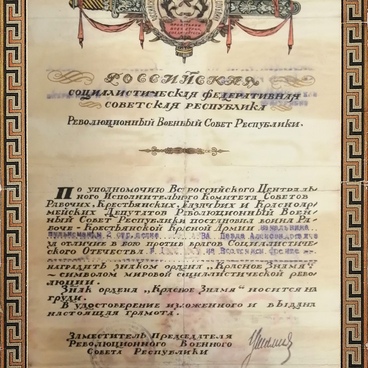 Российская
социалистическая федеративная
советская республика
Революционный Военный Совет Республики.
По уполномочию Всероссийского Централь-
ного Исполнительного Комитета Советов
Рабочих, Крестьянских, Казачьих и Красноар-
мейских Депутатов Революционный Воен-
ный Совет Республики постановил воина Ра-
боче-Крестьянской Красной Армии
за отличие в бою против врагов Социалистиче-
ского Отечества
наградить знаком ордена „Красное Знамя"
-символом мировой социалистической рево-
люции.
Знак ордена „Красное Знамя" носится на
груди.
В удостоверение изложенного и выдана
настоящая грамота.
Заместитель Председателя
Революционного Военного
Совета Республики